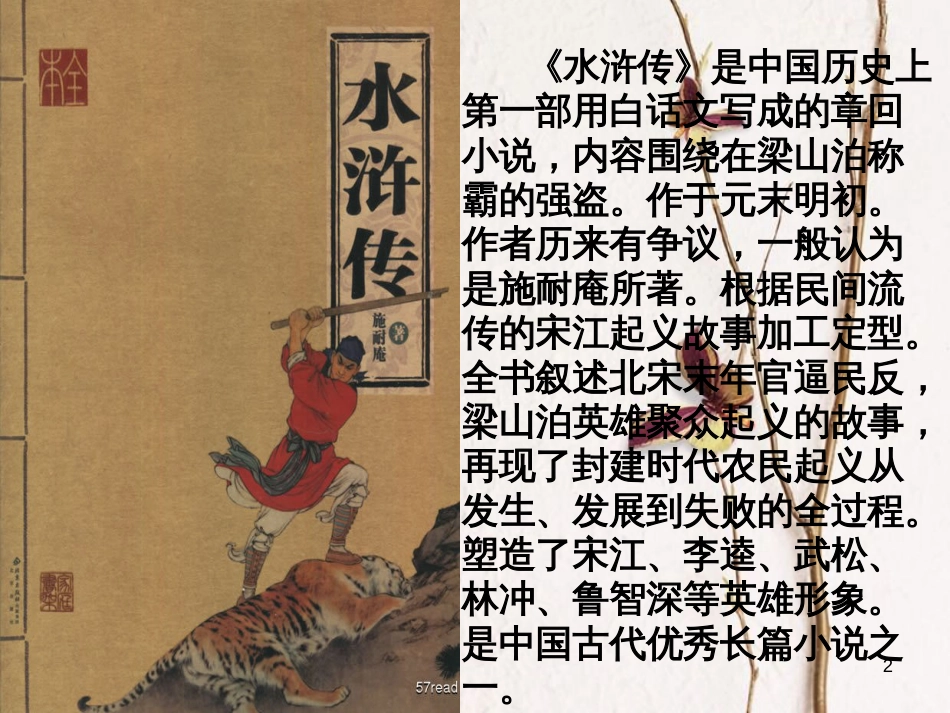 全本
水浒传
施耐庵 著
57read
《水浒传》是中国历史上
第一部用白话文写成的章回
小说，内容围绕在梁山泊称
霸的强盗。作于元末明初。
作者历来有争议，一般认为
是施耐庵所著。根据民间流
传的宋江起义故事加工定型。
全书叙述北宋末年官逼民反，
梁山泊英雄聚众起义的故事，
再现了封建时代农民起义从
发生、发展到失败的全过程。
塑造了宋江、李逵、武松、
林冲、鲁智深等英雄形象。
是中国古代优秀长篇小说之
一。
2